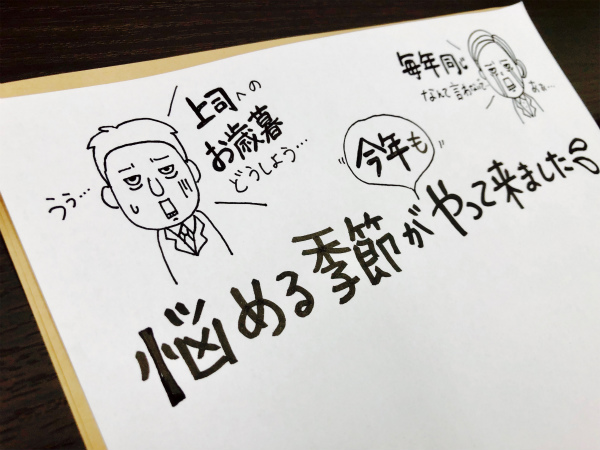 上司への
お歳暮
どうしよう…
うぅ…
毎年同じ
なんて言わないで
あぁ…
今年も
悩める季節がやって来ました